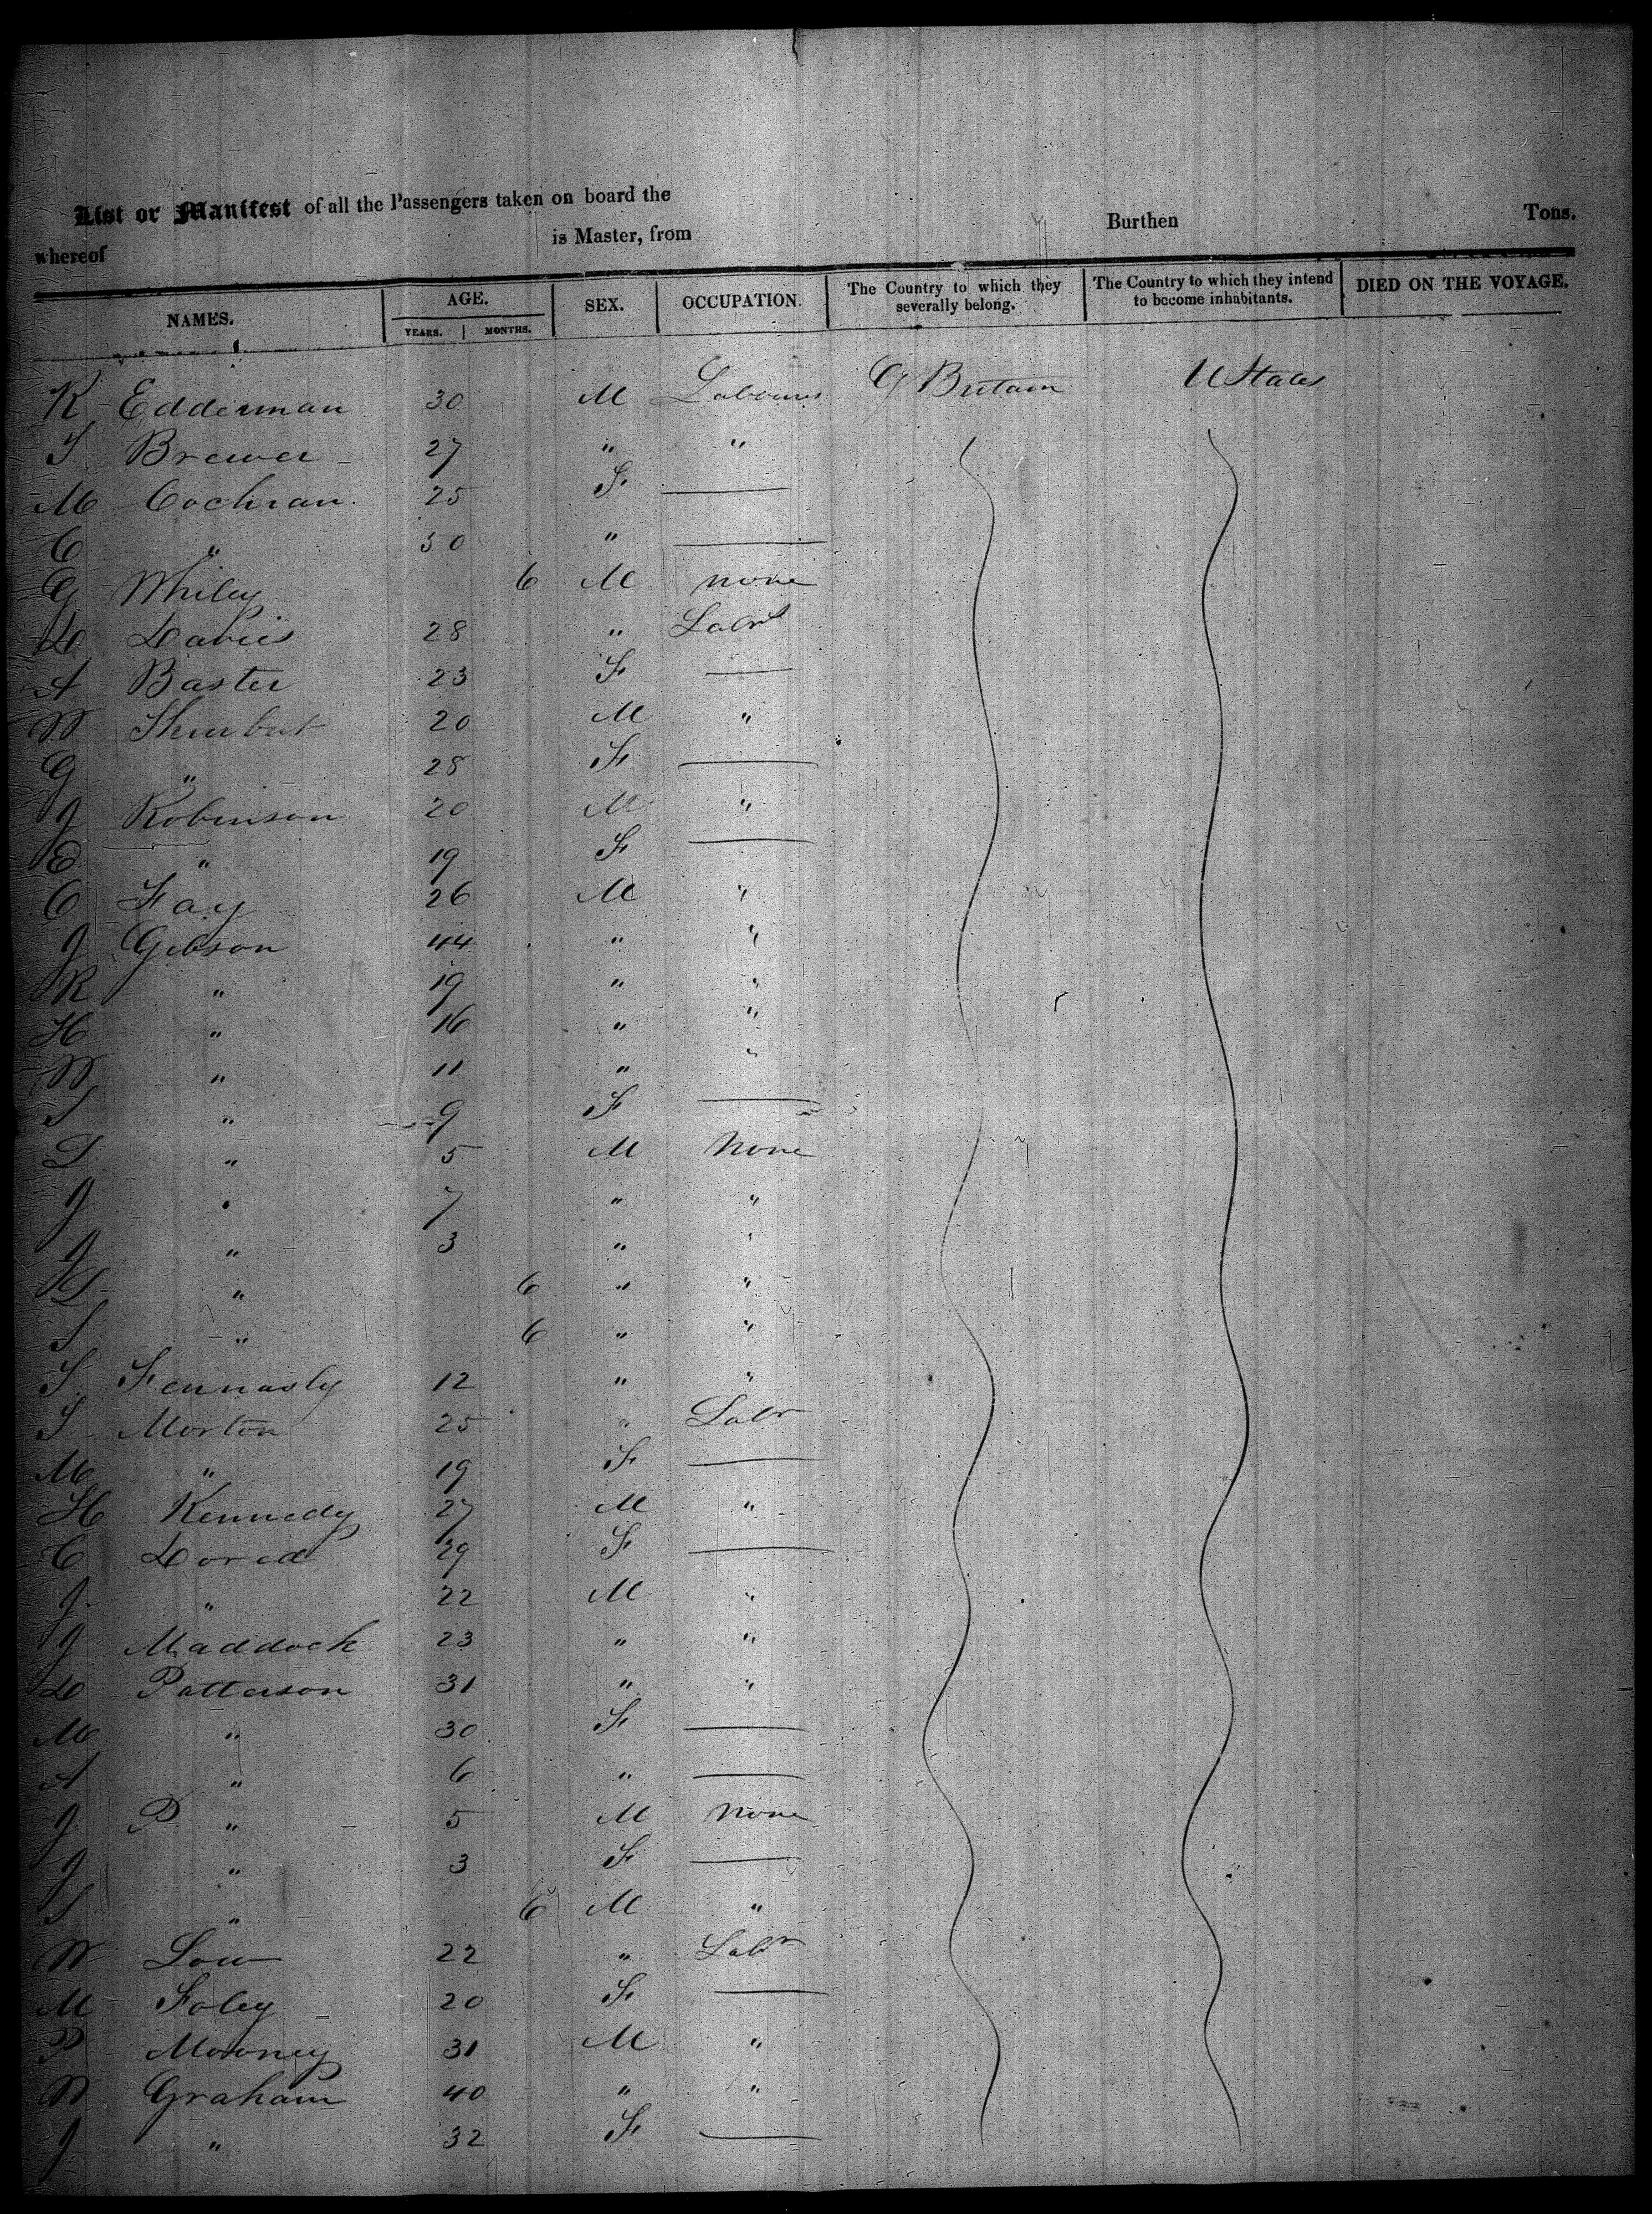 List or Manifest of all the Passengers taken on board the Burthen Tons.
whereof is Master, from
NAMES. AGE. YEARS. MONTHS. SEX. OCCUPATION. The Country to which they severally belong. The Country to which they intend to become inhabitants. DIED ON THE VOYAGE.
K Edderman 30 M Labourers G Britain U States
S Brewer 27 " "
M Cochran 25 F —
C " 30 " —
G Whiley 6 M none
D Davies 28 " Labrs
A Baster 23 F —
W 20 M "
G " 28 F —
J Robinson 20 M "
E " 19 F —
C Fay 26 M "
J Gibson 44 " "
R " 19 " "
H " 16 " "
W " 11 " "
S " 9 F —
L " 5 M None
J " 7 " "
J " 3 " "
L " 6 " "
S " 6 " "
S 12 " "
S Morton 25 " Labr
M " 19 F —
H Kennedy 27 M "
C Dored 29 F —
J " 22 M "
J Maddock 23 " "
D Patterson 31 " "
M " 30 F —
A " 6 " —
J P " 5 M none
J " 3 F —
S " 6 M "
W Low 22 " Labr
M Foley 20 F —
P Mooney 31 M "
W Graham 40 " "
J " 32 F —